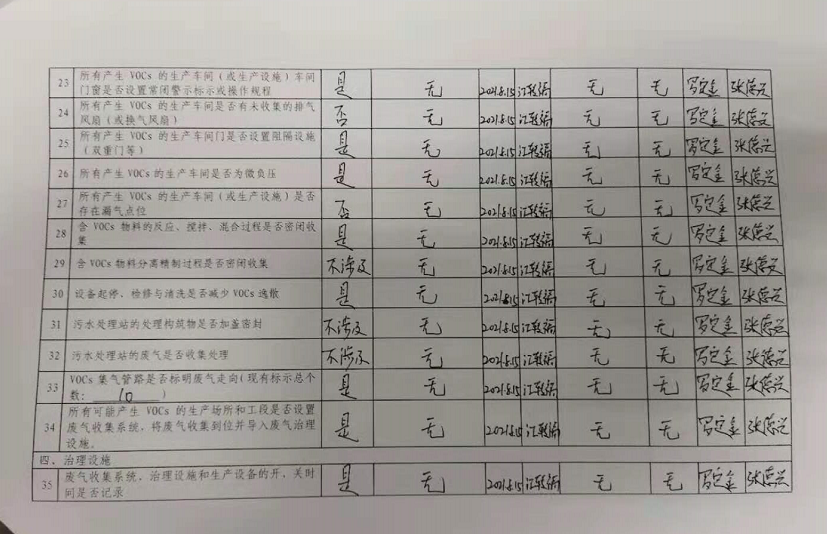 23 所有产生 VOCs 的生产车间（或生产设施）车间门窗是否设置常闭警示标示或操作规程 是 无 2021.8.15 无 无
24 所有产生 VOCs 的生产车间是否有未收集的排气风扇（或换气风扇） 否 无 2021.8.15 无 无
25 所有产生 VOCs 的生产车间门是否设置阻隔设施（双重门等） 是 无 2021.8.15 无 无
26 所有产生 VOCs 的生产车间是否为微负压 是 无 2021.8.15 无 无
27 所有产生 VOCs 的生产车间（或生产设施）是否存在漏气点位 否 无 2021.8.15 无 无
28 含 VOCs 物料的反应、搅拌、混合过程是否密闭收集 是 无 2021.8.15 无 无
29 含 VOCs 物料分离精制过程是否密闭收集 不涉及 无 2021.8.15 无 无
30 设备起停、检修与清洗是否减少 VOCs 逸散 是 无 2021.8.15 无 无
31 污水处理站的处理构筑物是否加盖密封 不涉及 无 2021.8.15 无 无
32 污水处理站的废气是否收集处理 不涉及 无 2021.8.15 无 无
33 VOCs 集气管路是否标明废气走向（现有标示总个数：10） 是 无 2021.8.15 无 无
34 所有可能产生 VOCs 的生产场所和工段是否设置废气收集系统，将废气收集到位并导入废气治理设施。 是 无 2021.8.15 无 无
四、治理设施
35 废气收集系统、治理设施和生产设备的开、关时间是否记录 是 无 2021.8.15 无 无